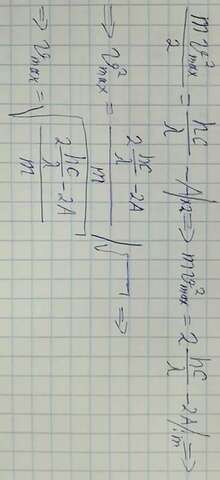 mv²max/2 = hc/λ - A |·2 ⇒ mv²max = 2 hc/λ - 2A |:m ⇒
⇒ v²max = (2 hc/λ - 2A)/m |√ ⇒
⇒ vmax = √((2 hc/λ - 2A)/m)